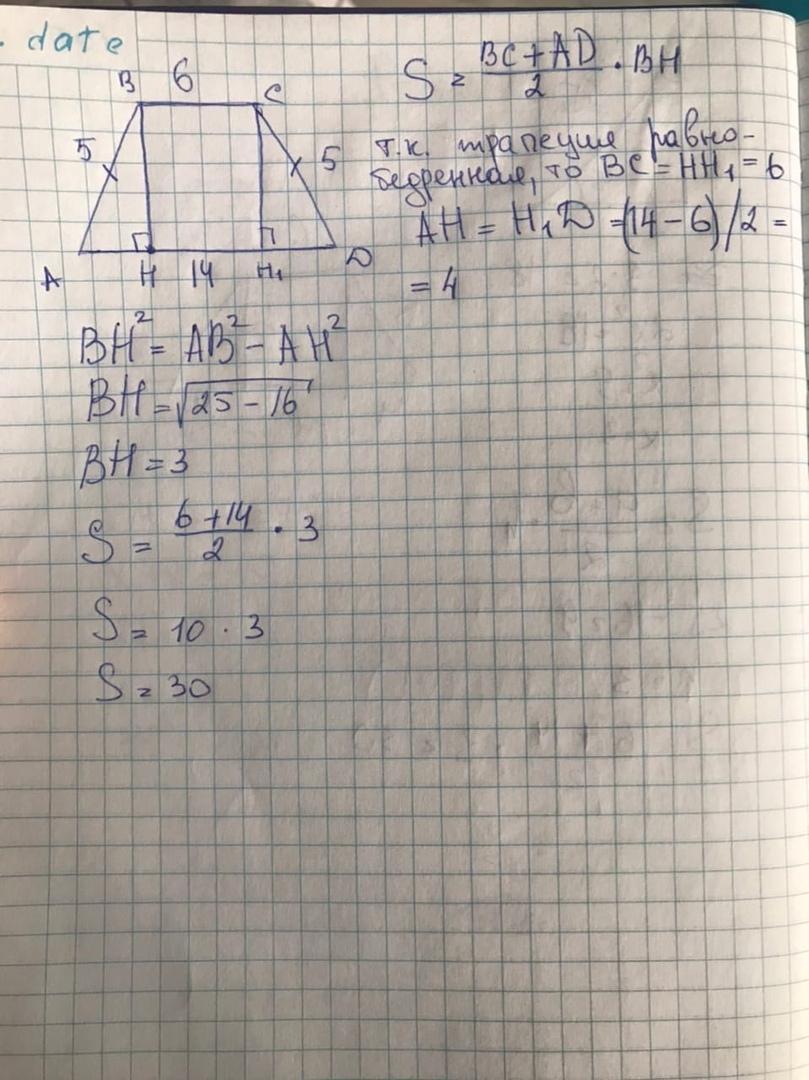 . date
B 6 C
5 5
A H 14 H₁ D
S = (BC + AD)/2 · BH
т.к. трапеция равно-
бедренная, то BC = HH₁ = 6
AH = H₁D = (14 - 6)/2 =
= 4
BH² = AB² - AH²
BH = √(25 - 16)
BH = 3
S = (6 + 14)/2 · 3
S = 10 · 3
S = 30